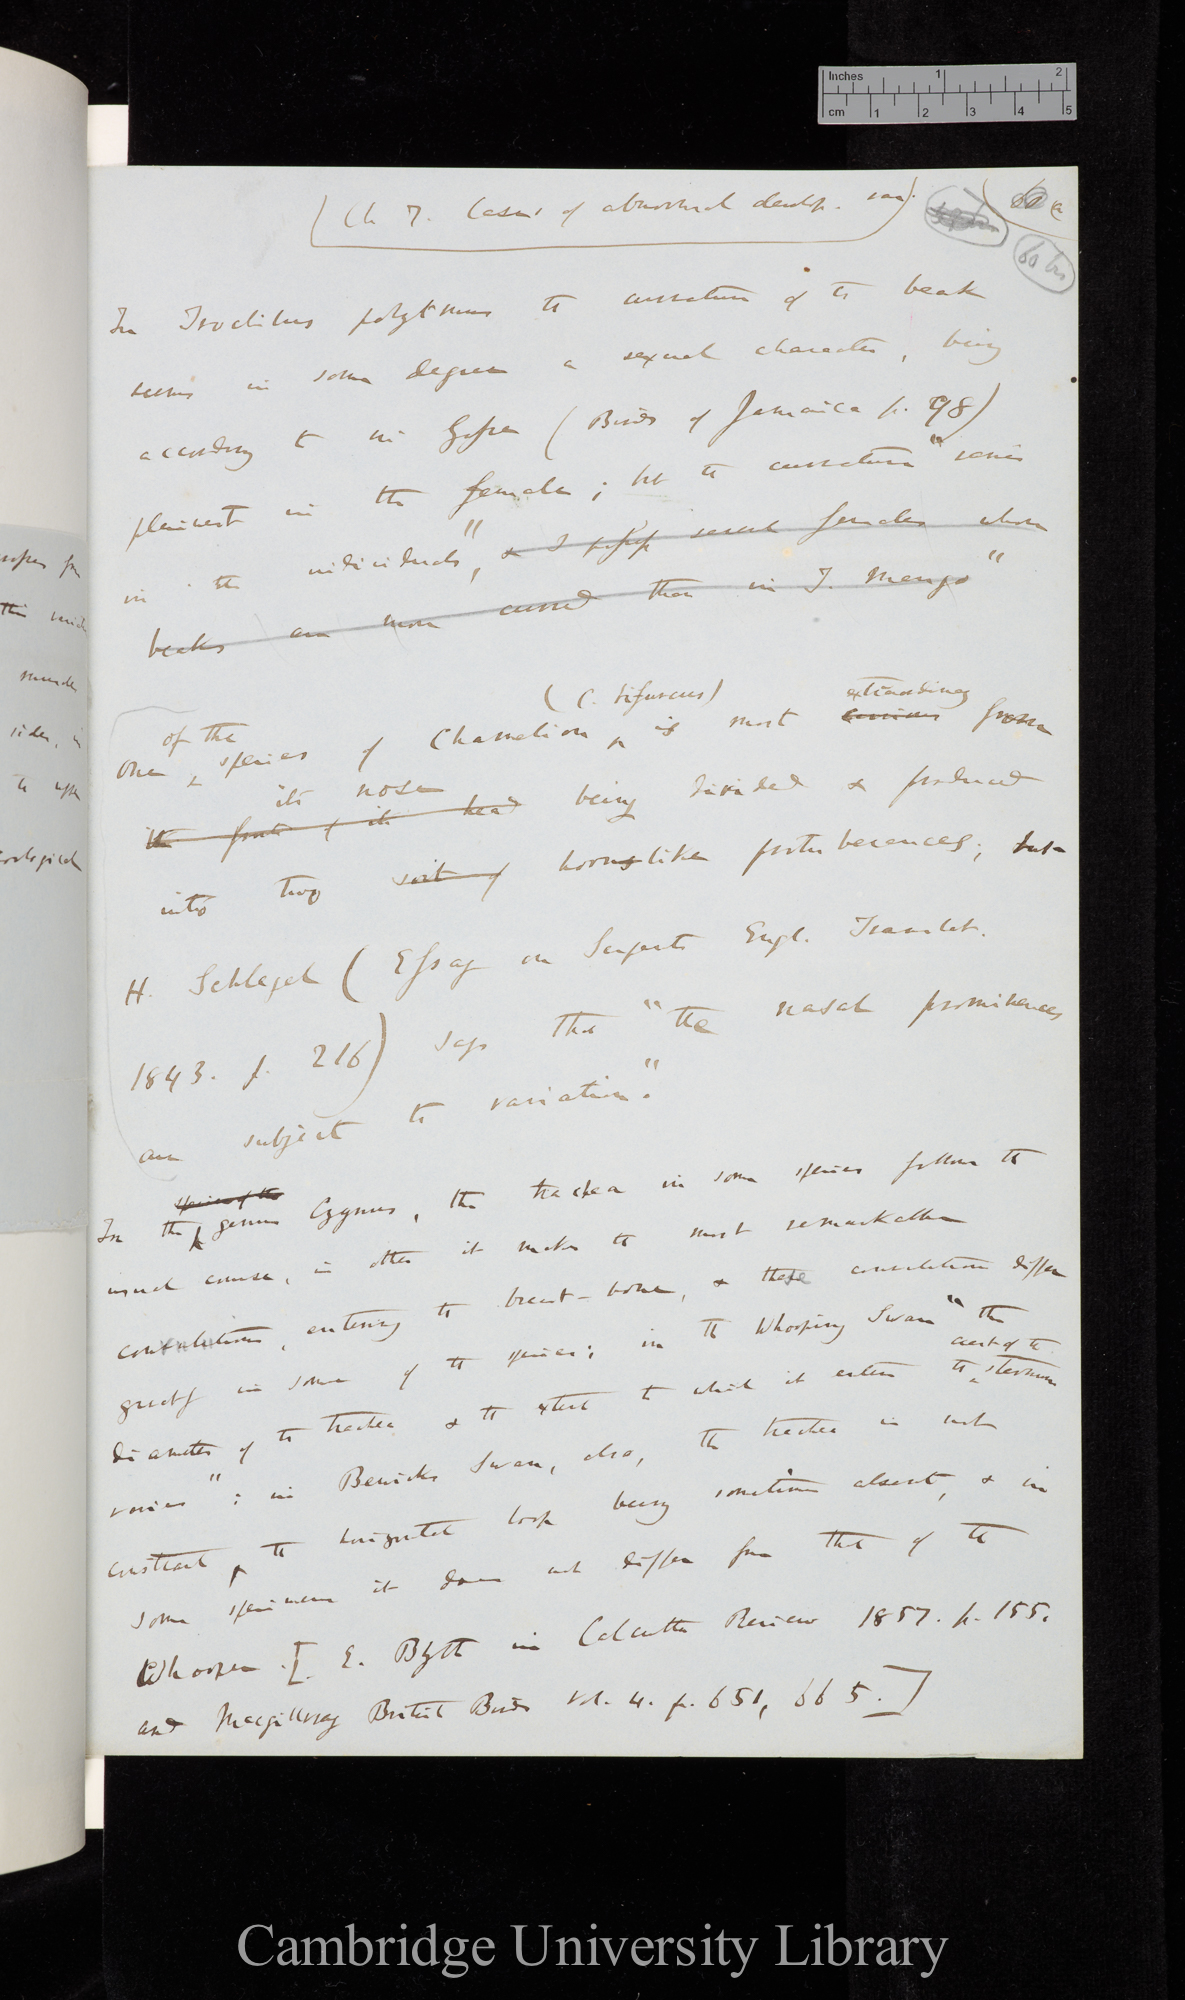 Inches 1 2
cm 1 2 3 4 5
(Ch 7. Cases of abnormal develop. var).
60 bis
In Trochilus polytmus the curvature of the beak
seems in some degree a sexual character, being
according to Mr Gosse (Birds of Jamaica p. 98)
plainest in the female; but the curvature "varies
in the individuals", & I possess several females whose
beaks are more curved than in T. Mango"
(C. bifurcus) extraordinary
of the
One species of Chamelion, is most curious from
its nose
the front of its head being divided & produced
into two sort of horns like protuberences; but
H. Schlegel (Essay on Serpents Engl. Translat.
1843. p. 216) says that "the nasal prominences
are subject to variation".
species of the
In the genus Cygnus, the trachea in some species follows the
usual course, in others it makes the most remarkable
convolutions, entering the breast-bone, & these convolutions differ
greatly in some of the species; in the Whooping Swan "the
crest of the
diameter of the trachea & the extent to which it enters the sternum
varies"; in Bewicks Swan, also, the trachea is not
constant, the horizontal loop being sometimes absent, & in
some specimens it does not differ from that of the
Whooper. [E. Blyth in Calcutta Review 1857. p. 155.
and Macgillivray British Birds vol. 4. p. 651, 665.]
Cambridge University Library